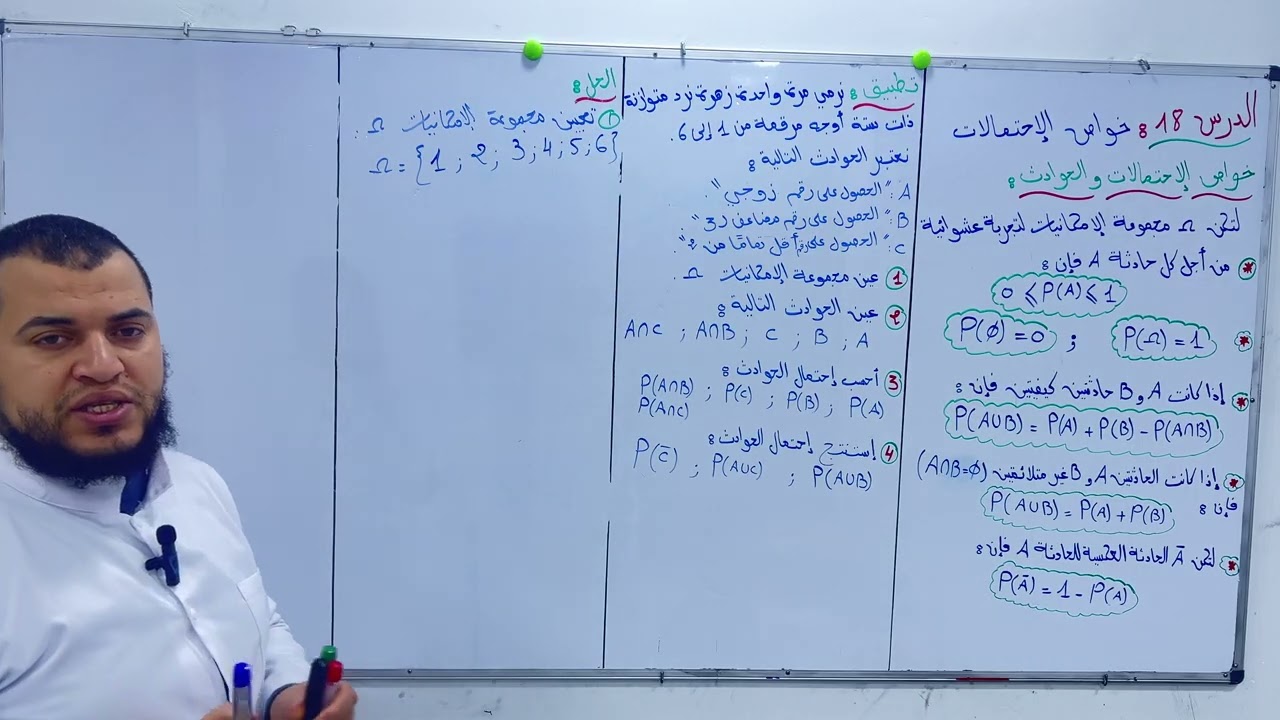 الدرس 18 : خواص الإحتمالات
خواص الإحتمالات و الحوادث :
لتكن Ω مجموعة الإمكانيات لتجربة عشوائية
* من أجل كل حادثة A فإن :
0 ⩽ P(A) ⩽ 1
* P(Ω) = 1 ; P(∅) = 0
* إذا كانت A و B حادثتين كيفيتين فإن :
P(A∪B) = P(A) + P(B) - P(A∩B)
* إذا كانت الحادثتين A و B غير متلائمتين (A∩B=∅)
فإن :
P(A∪B) = P(A) + P(B)
* لتكن Ā الحادثة العكسية للحادثة A فإن :
P(Ā) = 1 - P(A)
تطبيق : نرمي مرة واحدة زهرة نرد متوازنة
ذات ستة أوجه مرقمة من 1 إلى 6.
نعتبر الحوادث التالية :
A : "الحصول على رقم زوجي".
B : "الحصول على رقم مضاعف لـ 3"
C : "الحصول على رقم أقل تماما من 2".
1 عين مجموعة الإمكانيات Ω .
2 عين الحوادث التالية :
A ; B ; C ; A∩B ; A∩C
3 أحسب إحتمال الحوادث :
P(A) ; P(B) ; P(C) ; P(A∩B)
P(A∩C)
4 إستنتج إحتمال الحوادث :
P(A∪B) ; P(A∪C) ; P(C̄)
الحل :
1 تعيين مجموعة الإمكانيات Ω :
Ω = {1 ; 2 ; 3 ; 4 ; 5 ; 6}